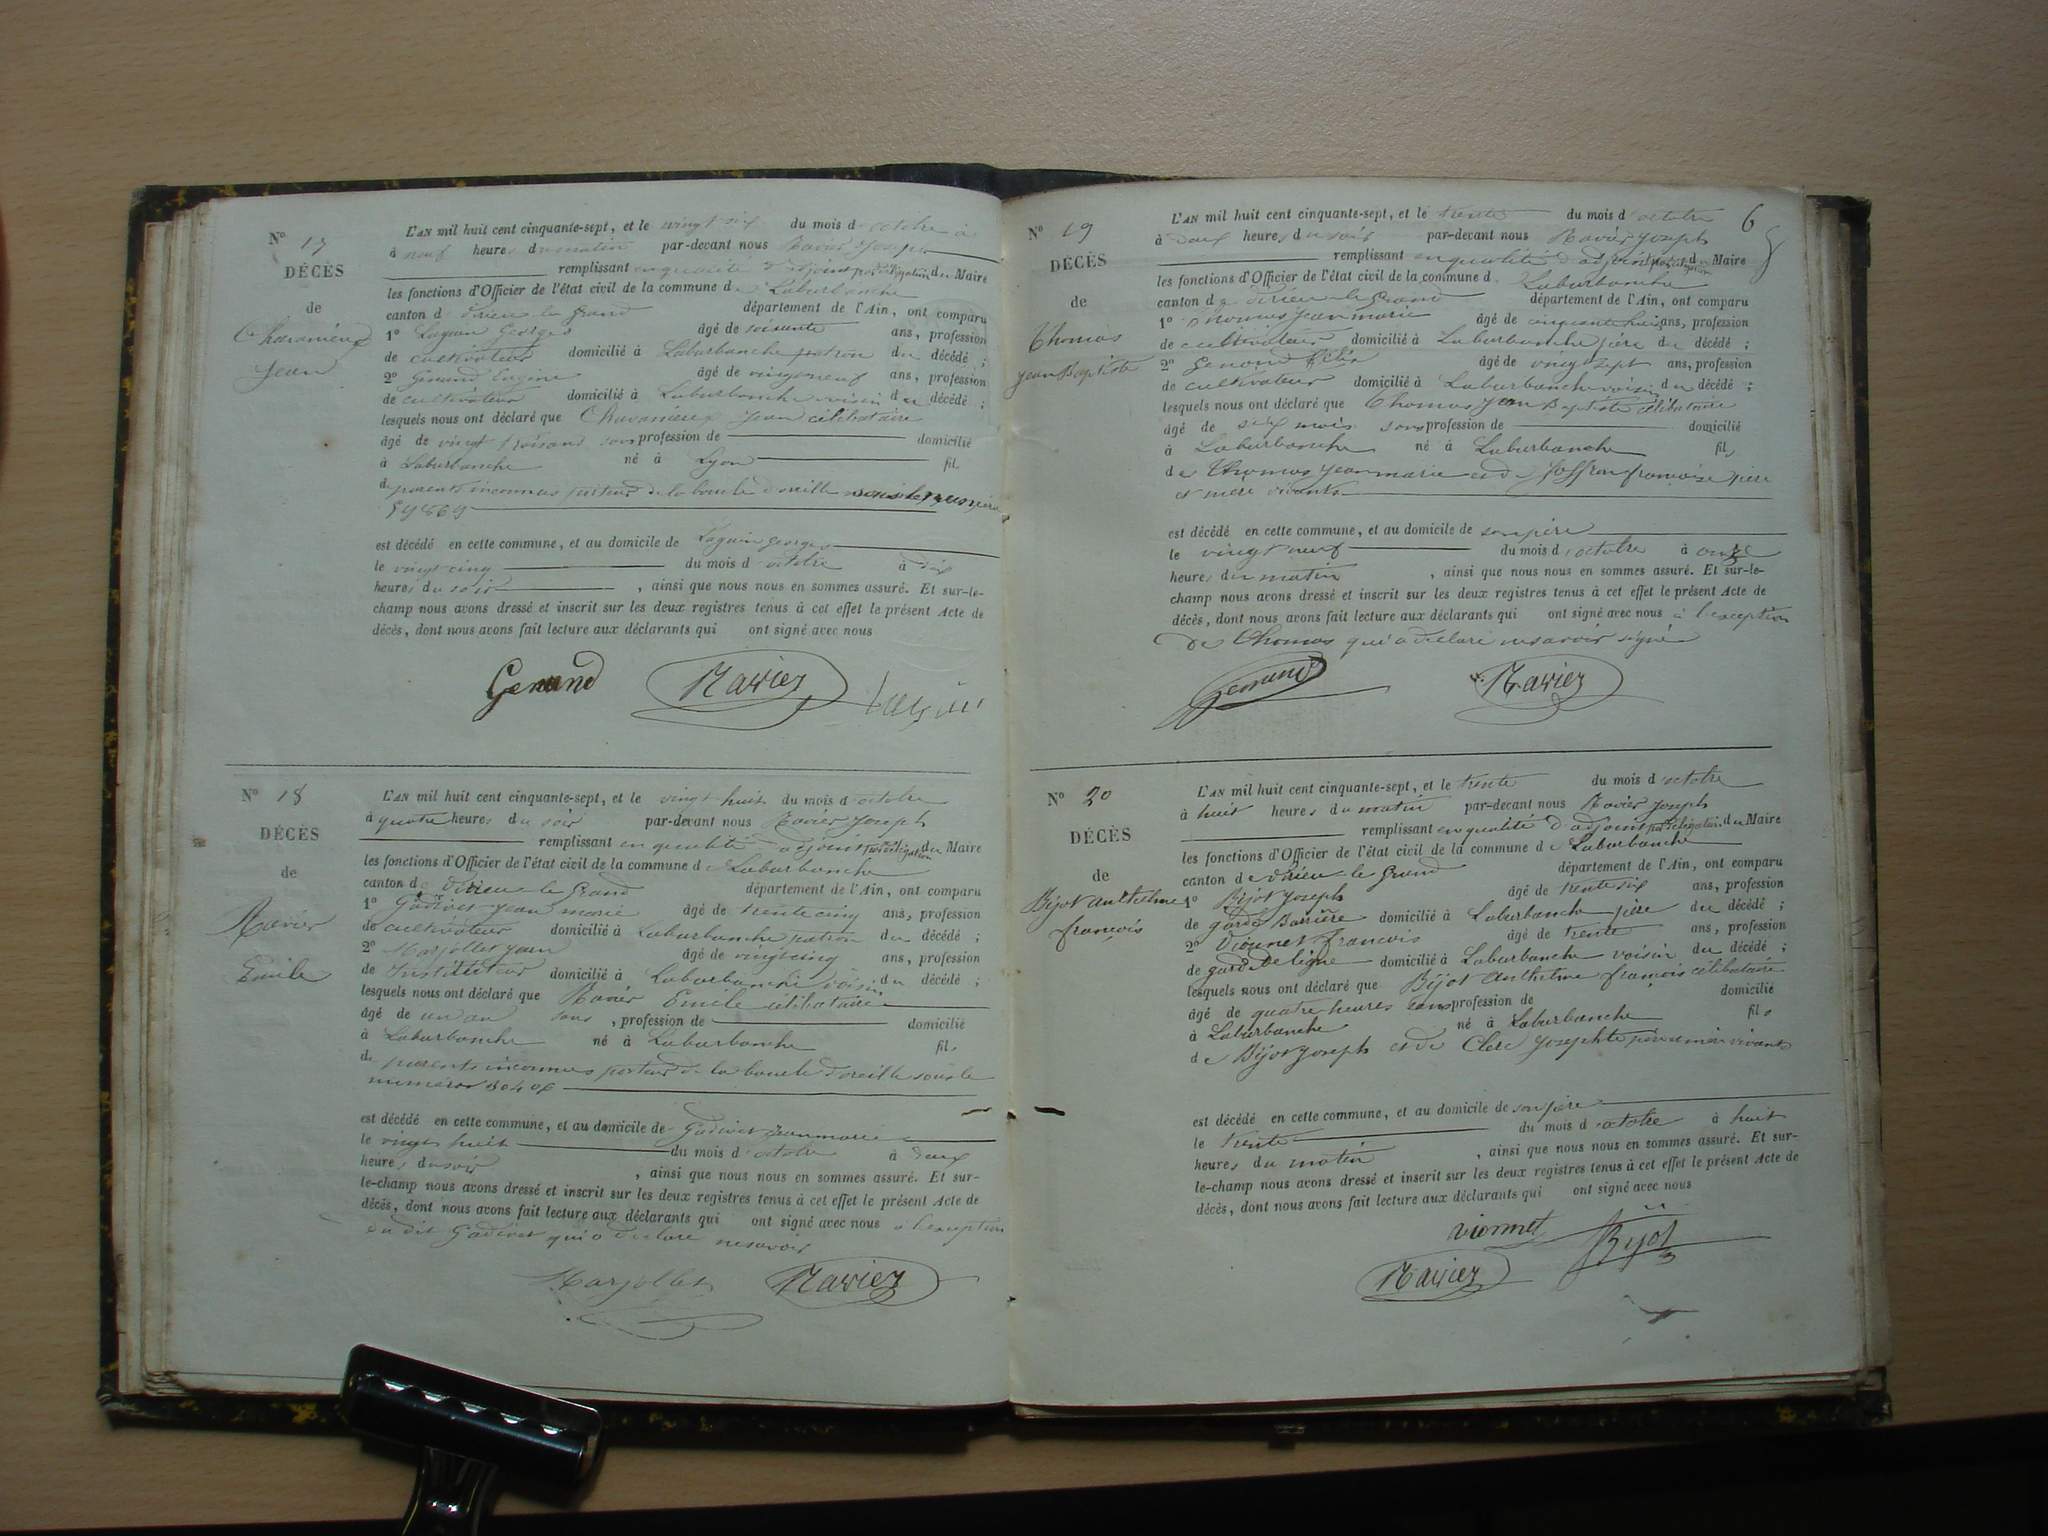 N° 17
DÉCÈS
de
Jean
L'AN mil huit cent cinquante-sept, et le vingt six du mois d octobre à
à neuf heures du matin par-devant nous Ravier Joseph
remplissant en qualité d'adjoint par délégation du Maire
les fonctions d'Officier de l'état civil de la commune de Laburbanche
canton de Virieu le Grand département de l'Ain, ont comparu
1° Laguin Georges âgé de soixante ans, profession
de cultivateur domicilié à Laburbanche patron du décédé ;
2° Genand Eugène âgé de vingt neuf ans, profession
de cultivateur domicilié à Laburbanche voisin du décédé ;
lesquels nous ont déclaré que Jean célibataire
âgé de vingt trois ans sans profession de domicilié
à Laburbanche né à Lyon fils
de parents inconnus porteur de la boucle d'oreille sous le numéro
59869
est décédé en cette commune, et au domicile de Laguin Georges
le vingt cinq du mois d octobre à dix
heures du soir , ainsi que nous nous en sommes assuré. Et sur-le-
champ nous avons dressé et inscrit sur les deux registres tenus à cet effet le présent Acte de
décès, dont nous avons fait lecture aux déclarants qui ont signé avec nous
Genand Ravier
N° 18
DÉCÈS
de
Ravier
Emile
L'AN mil huit cent cinquante-sept, et le vingt huit du mois d octobre
à quatre heures du soir par-devant nous Ravier Joseph
remplissant en qualité d'adjoint par délégation du Maire
les fonctions d'Officier de l'état civil de la commune de Laburbanche
canton de Virieu le Grand département de l'Ain, ont comparu
1° Gadivet Jean marie âgé de trente cinq ans, profession
de cultivateur domicilié à Laburbanche patron du décédé ;
2° Marjollet Jean âgé de vingt cinq ans, profession
de Instituteur domicilié à Laburbanche voisin du décédé ;
lesquels nous ont déclaré que Ravier Emile célibataire
âgé de un an sans , profession de domicilié
à Laburbanche né à Laburbanche fils
de parents inconnus porteur de la boucle d'oreille sous le
numéro
est décédé en cette commune, et au domicile de Gadivet Jean marie
le vingt huit du mois d octobre à deux
heures du soir , ainsi que nous nous en sommes assuré. Et sur-
le-champ nous avons dressé et inscrit sur les deux registres tenus à cet effet le présent Acte de
décès, dont nous avons fait lecture aux déclarants qui ont signé avec nous à l'exception
du dit Gadivet qui a déclaré ne savoir
Marjollet Ravier
6
N° 19
DÉCÈS
de
Thomas
Jean Baptiste
L'AN mil huit cent cinquante-sept, et le trente du mois d octobre
à deux heures du soir par-devant nous Ravier Joseph
remplissant en qualité d'adjoint par délégation du Maire
les fonctions d'Officier de l'état civil de la commune de Laburbanche
canton de Virieu le Grand département de l'Ain, ont comparu
1° Thomas Jean marie âgé de cinquante huit ans, profession
de cultivateur domicilié à Laburbanche père du décédé ;
2° Genand Félix âgé de vingt sept ans, profession
de cultivateur domicilié à Laburbanche voisin du décédé ;
lesquels nous ont déclaré que Thomas Jean Baptiste célibataire
âgé de mois sans profession de domicilié
à Laburbanche né à Laburbanche fils
de Thomas Jean marie et de Joffron françoise père
et mère vivants
est décédé en cette commune, et au domicile de son père
le vingt neuf du mois d octobre à onze
heures du matin , ainsi que nous nous en sommes assuré. Et sur-le-
champ nous avons dressé et inscrit sur les deux registres tenus à cet effet le présent Acte de
décès, dont nous avons fait lecture aux déclarants qui ont signé avec nous à l'exception
de Thomas qui a déclaré ne savoir signé
Genand Ravier
N° 20
DÉCÈS
de
Bijot anthelme
françois
L'AN mil huit cent cinquante-sept, et le trente du mois d octobre
à huit heures du matin par-devant nous Ravier Joseph
remplissant en qualité d'adjoint par délégation du Maire
les fonctions d'Officier de l'état civil de la commune de Laburbanche
canton de Virieu le Grand département de l'Ain, ont comparu
1° Bijot Joseph âgé de trente six ans, profession
de garde Barrière domicilié à Laburbanche père du décédé ;
2° Vionnet françois âgé de trente ans, profession
de garde de ligne domicilié à Laburbanche voisin du décédé ;
lesquels nous ont déclaré que Bijot anthelme françois célibataire
âgé de quatre heures sans profession de domicilié
à Laburbanche né à Laburbanche fils
de Bijot Joseph et de Clerc Josephte père et mère vivants
est décédé en cette commune, et au domicile de son père
le trente du mois d octobre à huit
heures du matin , ainsi que nous nous en sommes assuré. Et sur-
le-champ nous avons dressé et inscrit sur les deux registres tenus à cet effet le présent Acte de
décès, dont nous avons fait lecture aux déclarants qui ont signé avec nous
Vionnet Bijot
Ravier